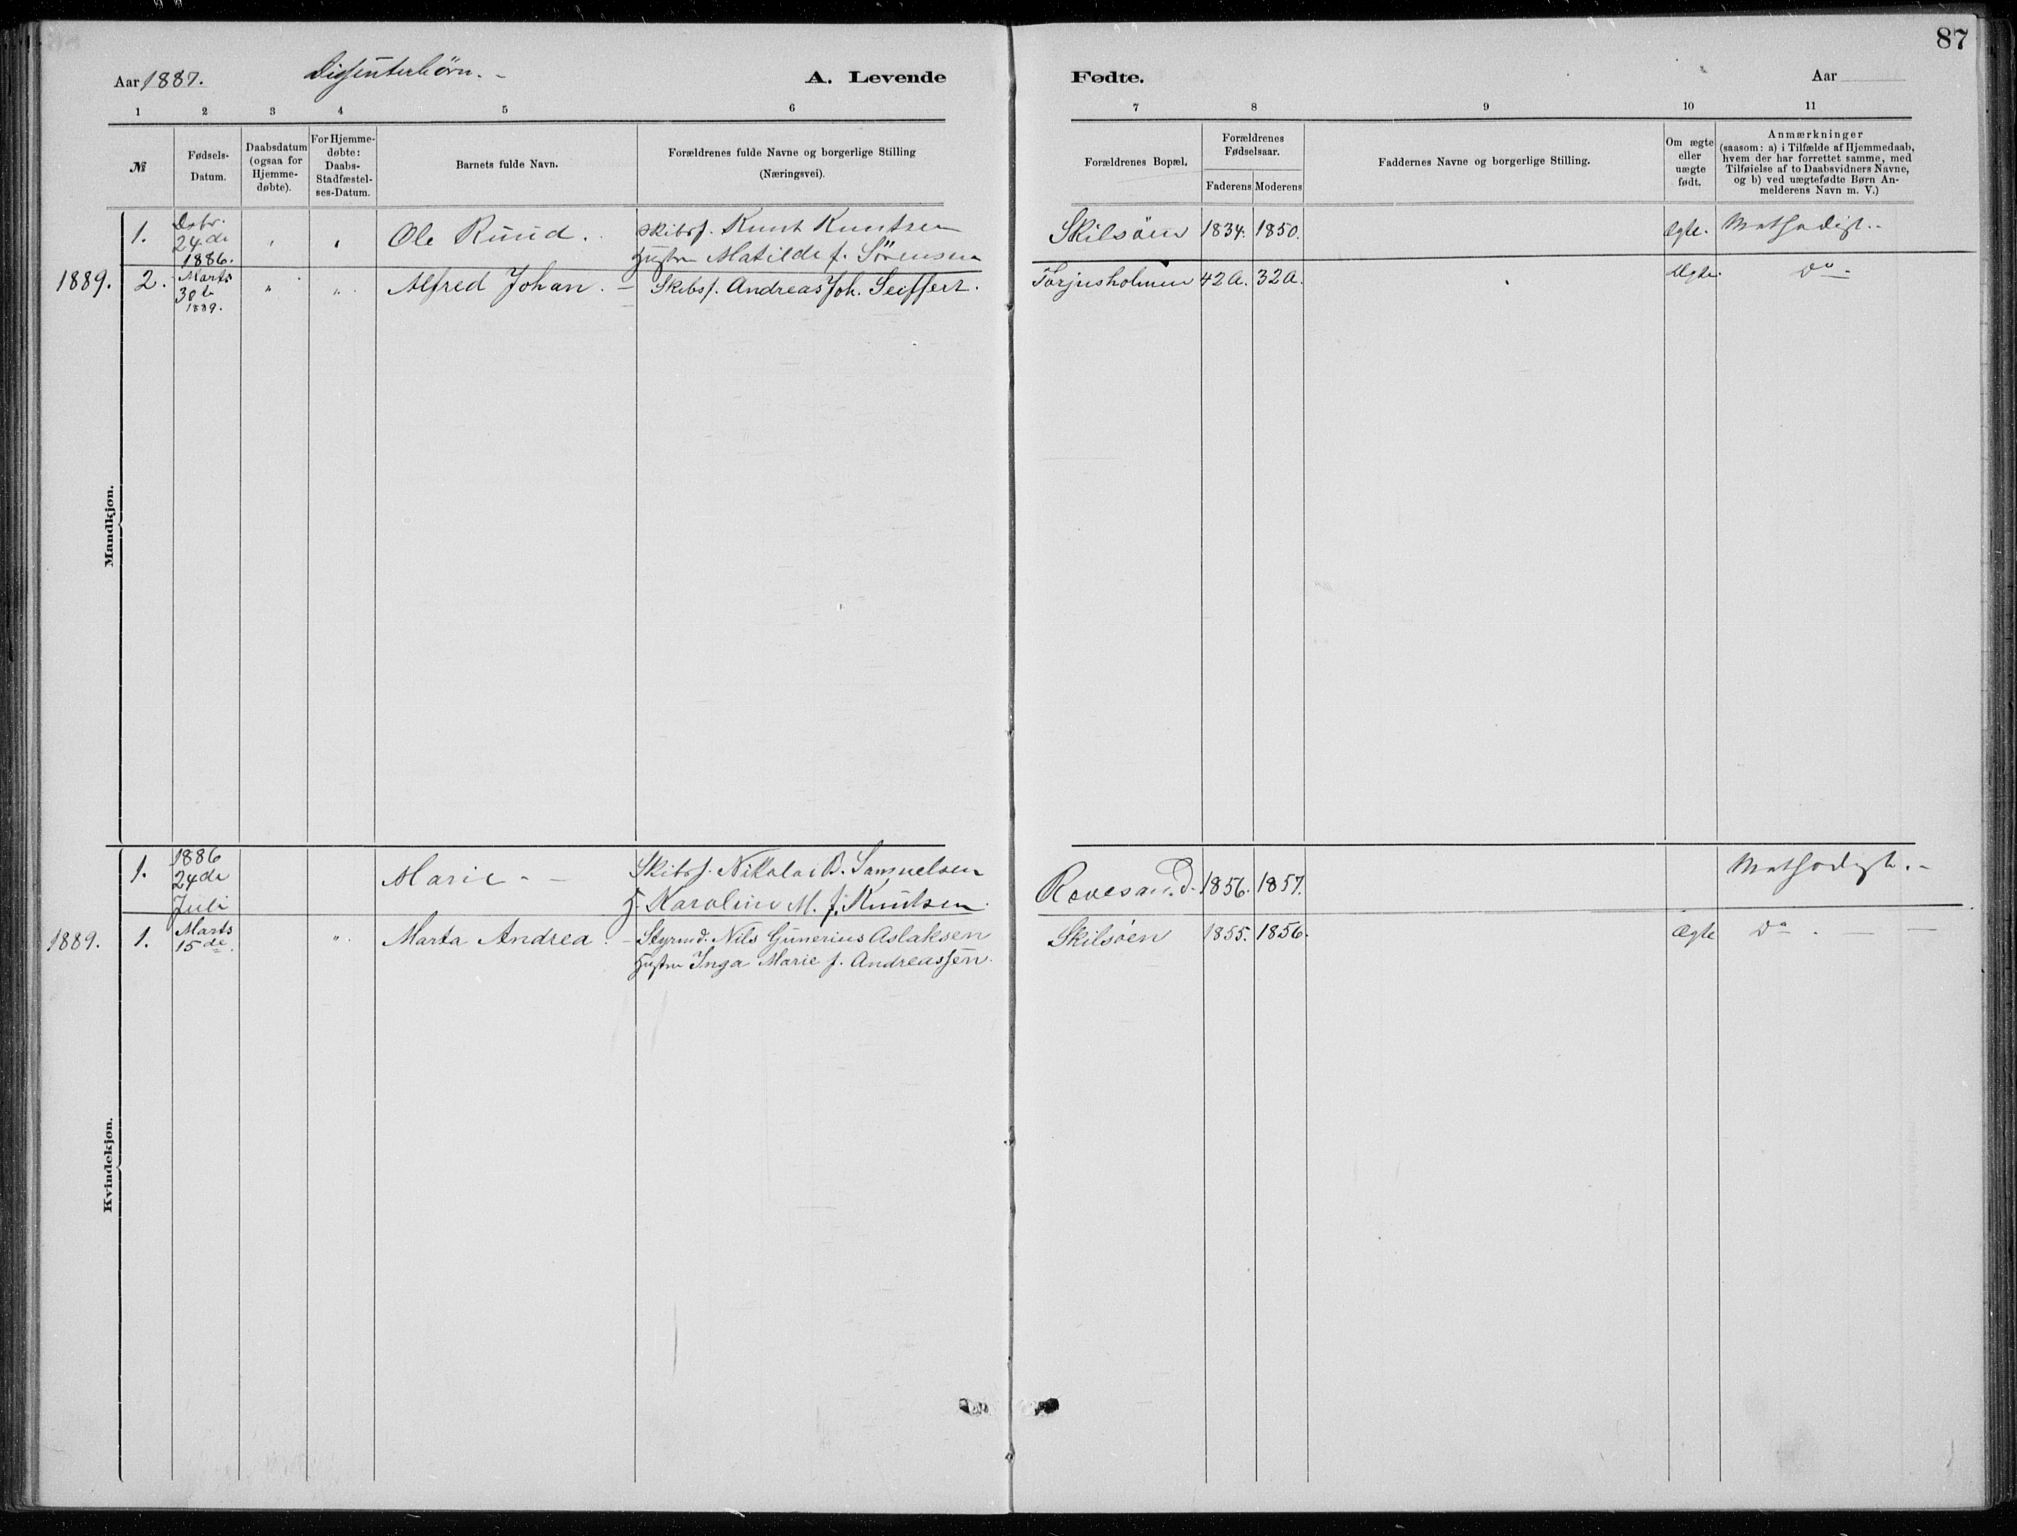 87
Aar 1887. Dissenterbörn. - A. Levende Fødte. Aar
1 2 3 4 5 6 7 8 9 10 11
№
Fødsels-
Datum.
Daabsdatum
(ogsaa for
Hjemme-
døbte).
For Hjemme-
døbte:
Daabs-
Stadfæstel-
ses-Datum.
Barnets fulde Navn.
Forældrenes fulde Navne og borgerlige Stilling
(Næringsvei).
Forældrenes Bopæl.
Forældrenes
Fødselsaar.
Faderens Moderens
Faddernes Navne og borgerlige Stilling.
Om ægte
eller
uægte
født.
Anmærkninger
(saasom: a) i Tilfælde af Hjemmedaab,
hvem der har forrettet samme, med
Tilføielse af to Daabsvidners Navne,
og b) ved uægtefødte Børn An-
melderens Navn m. V.)
Mandkjøn.
1. Dsbr. 24de 1886. " " Ole Ruud. Skibsf. Knut Knutsen
Hustru Matilde f. Sörensen
Skilsöen 1834. 1850. Ægte. Methodist.
1889. 2. Marts 30te 1889. " " Alfred Johan. - Skibsf. Andreas Joh. Seiffert.
Torjusholmen 42A. 32A. Uægte. Do -
Kvindekjøn.
1. 1886 24de Juli Marie - - Skibsf. Nikolai B. Samuelsen
H. Karoline M. f. Knutsen.
Revesand. 1856. 1857. Methodist. -
1889. 1. Marts 15de. " Marta Andrea. - Styrmd. Nils Gunerius Aslaksen
Hustru Inga Marie f. Andreassen.
Skilsöen 1855. 1856. Ægte Do . - -